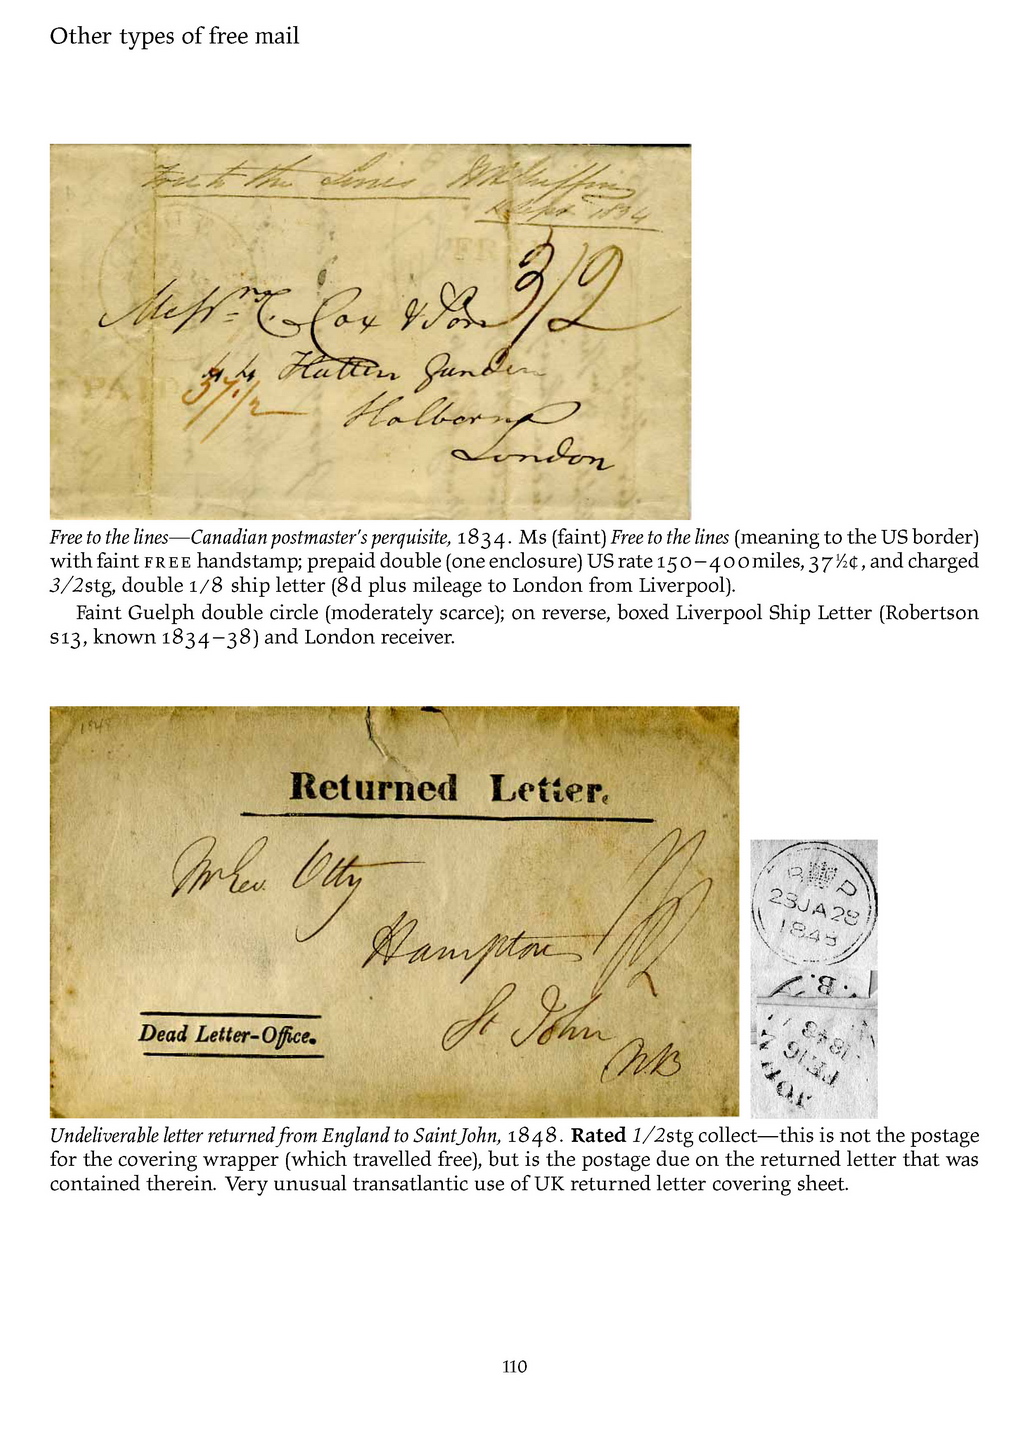 Other types of free mail
Free to the lines
4 Sept 1834
FREE
3/2
Messrs. C. Cox & Son
44 Hatten Garden
37 1/2
PAID
Holborn
London
Free to the lines—Canadian postmaster's perquisite, 1834. Ms (faint) Free to the lines (meaning to the US border)
with faint FREE handstamp; prepaid double (one enclosure) US rate 150–400 miles, 37½¢, and charged
3/2stg, double 1/8 ship letter (8d plus mileage to London from Liverpool).
Faint Guelph double circle (moderately scarce); on reverse, boxed Liverpool Ship Letter (Robertson
S13, known 1834–38) and London receiver.
1848
Returned Letter.
Otty
Hampton
1/2
St John
N.B
Dead Letter-Office.
23JA23
1848
.B.
1848
FE16
JOHN
Undeliverable letter returned from England to Saint John, 1848. Rated 1/2stg collect—this is not the postage
for the covering wrapper (which travelled free), but is the postage due on the returned letter that was
contained therein. Very unusual transatlantic use of UK returned letter covering sheet.
110